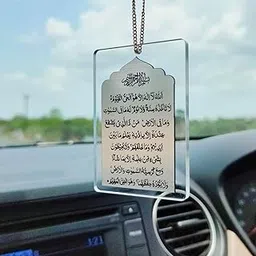 بسم الله الرحمن الرحيم
الله لا اله الا هو الحي القيوم
لا تأخذه سنة ولا نوم له ما في السموات
وما في الارض من ذا الذي يشفع
عنده الا باذنه يعلم ما بين
ايديهم وما خلفهم ولا يحيطون
بشيء من علمه الا بما شاء
وسع كرسيه السموات والارض
ولا يؤده حفظهما وهو العلي العظيم